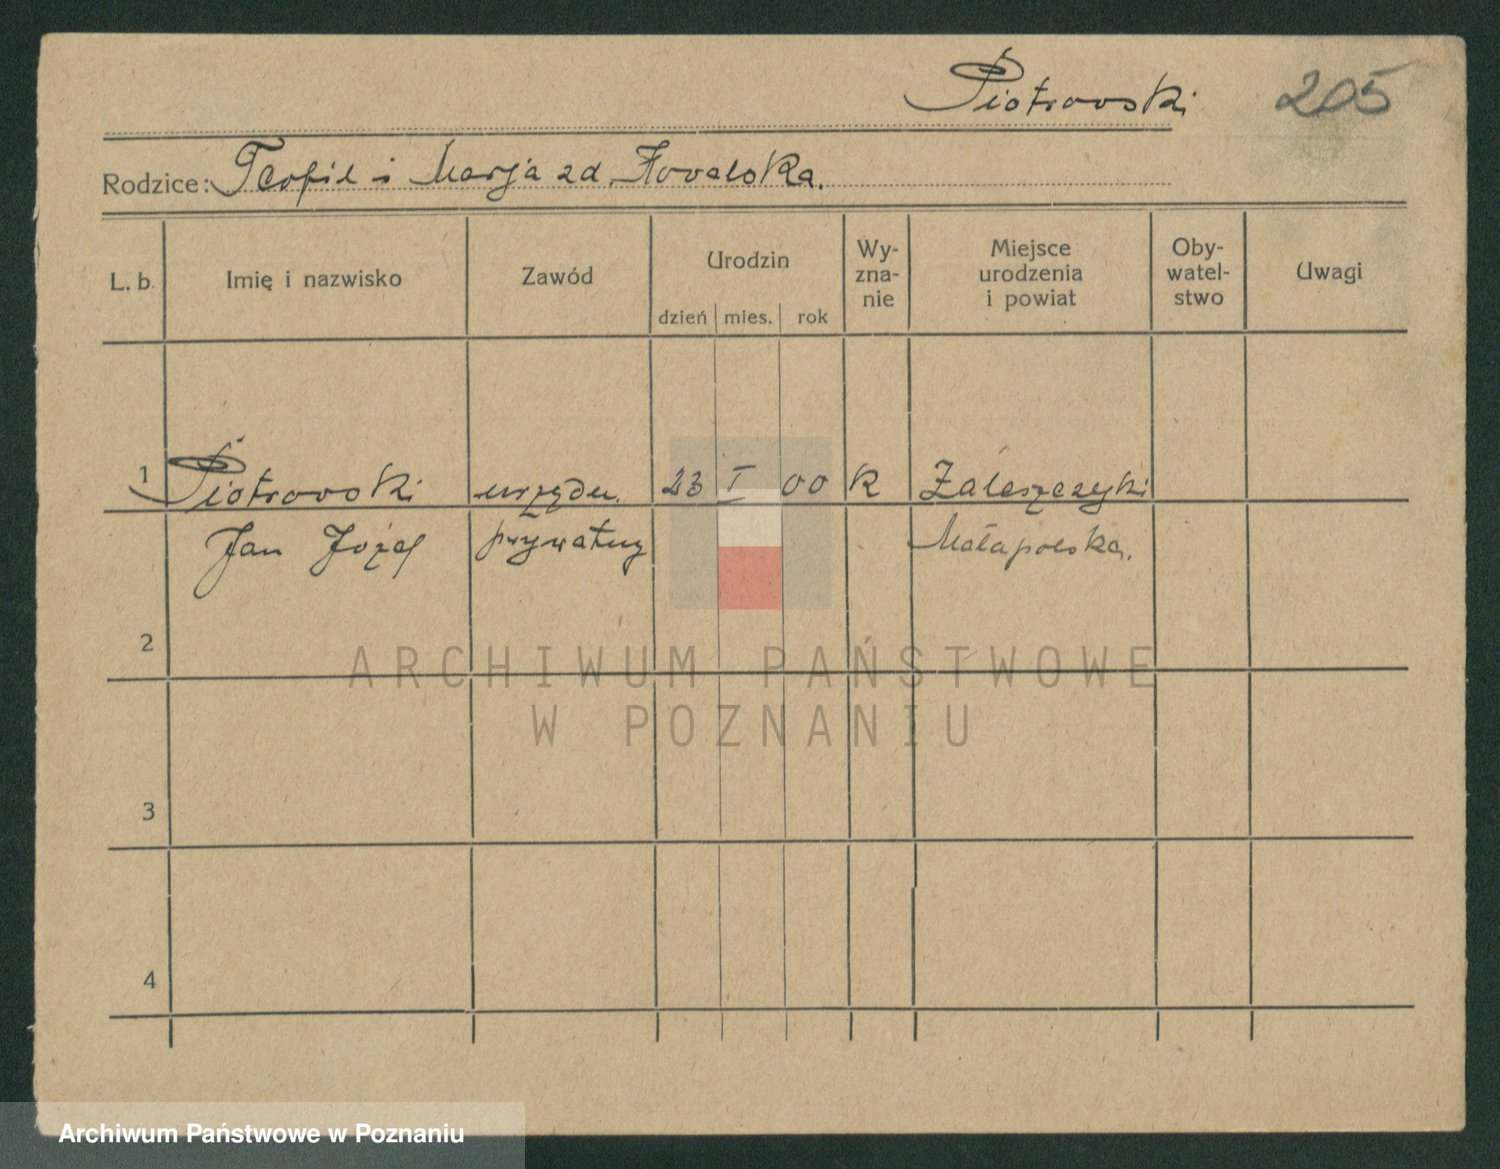 Piotrowski 205
Rodzice: Teofil i Marja zd. Kowalska.
L. b. Imię i nazwisko Zawód Urodzin dzień mies. rok Wy-zna-nie Miejsce urodzenia i powiat Oby-watel-stwo Uwagi
1 Piotrowski urzędn. 23 I 00 K Zaleszczyki
Jan Józef prywatny Małapolska.
2
3
4
ARCHIWUM PAŃSTWOWE
W POZNANIU
Archiwum Państwowe w Poznaniu